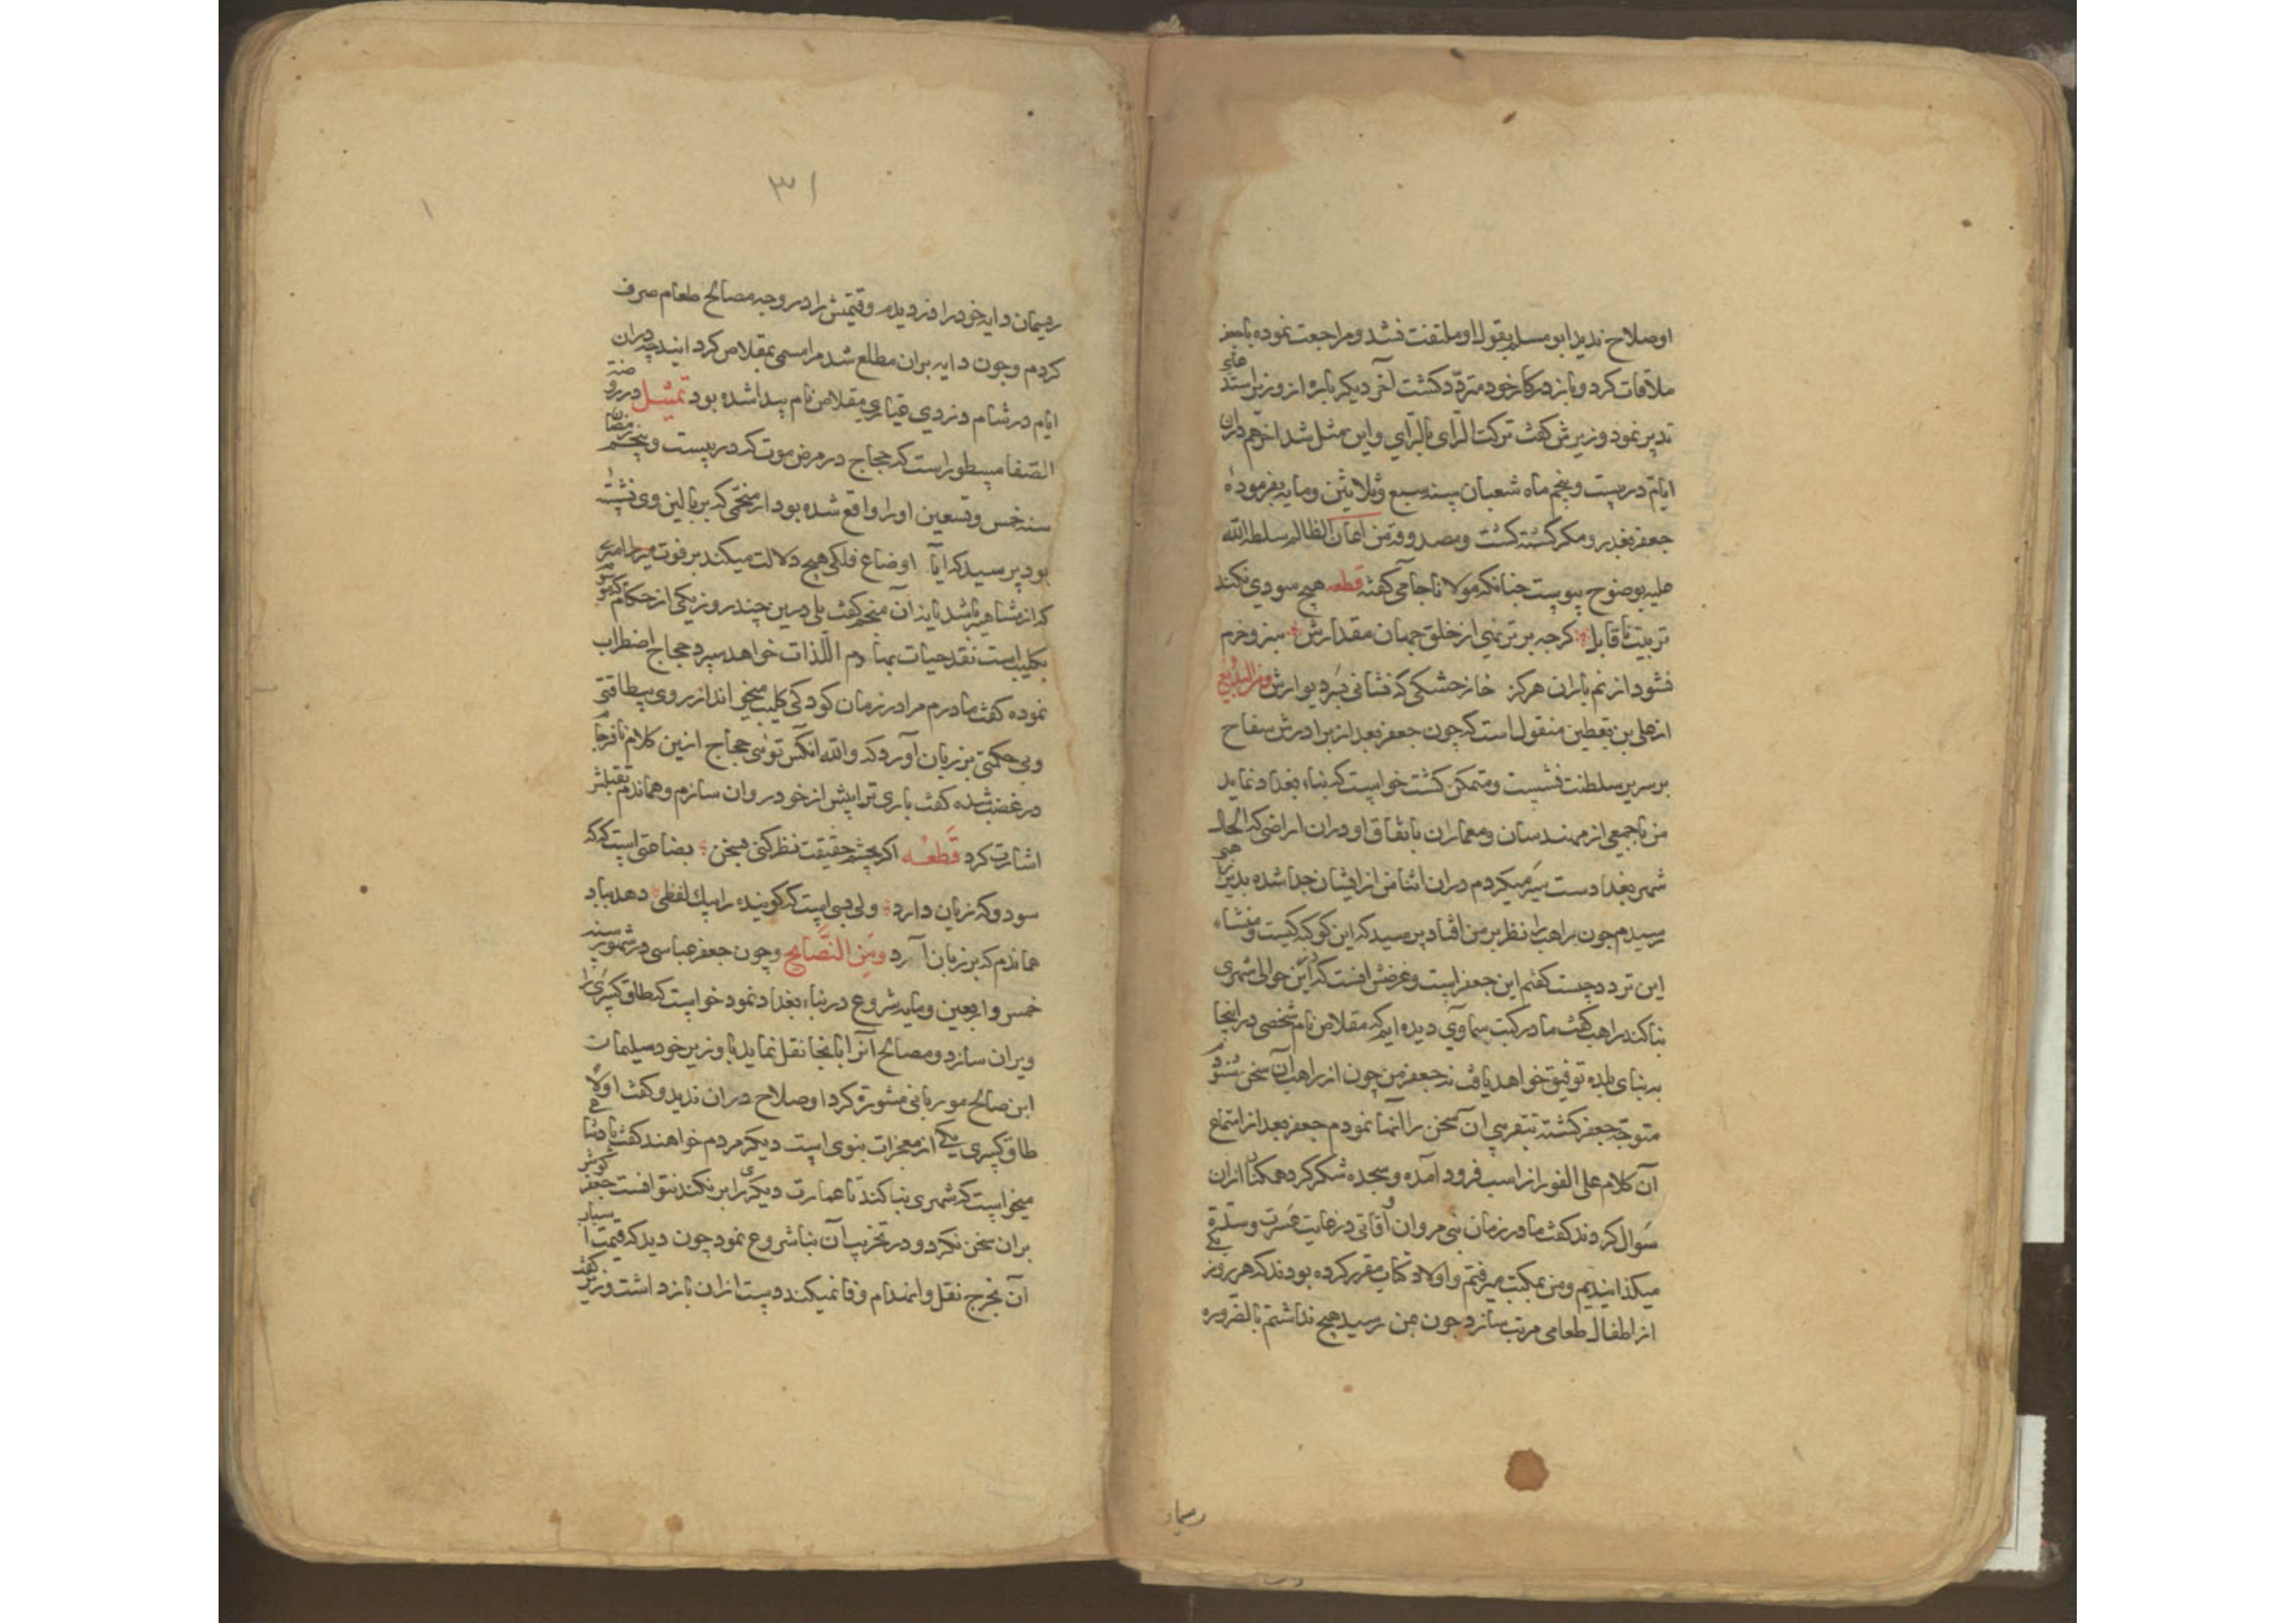 او صلاح ندید ابو مسلم بقول او ملتفت نشد و مراجعت نموده با جعفر
ملاقات کرد و باز در کار خود متردد کشت آخر دیکر باره از وزیر استدعای
تدبیر نمود وزیرش کفت ترکت الرای بالرای و این مثل شد آخر هم دران
ایام در بیست و پنجم ماه شعبان سنه سبع و ثلاثین و مایه بفرموده
جعفر بغدر و مکر کشته کشت و مصدوقه من اعان الظالم سلطه الله
علیه بوضوح پیوست چنانکه مولانا جامی کفته قطعه هیچ سودی نکند
تربیت ناقابل کرچه برتر نهی از خلق جهان مقدارش سبز و خرم
نشود از نم باران هرکز خار خشکی که نشانی بسر دیوارش ومن البدیع
از علی بن یقطین منقول است که چون جعفر بعد از برادرش سفاح
بر سریر سلطنت نشست و متمکن کشت خواست که بناء بغداد نماید
من با جمعی از مهندسان و معماران باتفاق او دران اراضی که الحال
شهر بغداد ست سیر میکردم دران اثنا من از ایشان جدا شده بدیر راهبی
رسیدم چون راهب را نظر بر من افتاد پرسید که این کوکبه کیست و منشاء
این تردد چیست کفتم این جعفر است و غرضش انست که درین حوالی شهری
بنا کند راهب کفت ما در کتب سماوی دیده ایم که مقلاص نام شخصی در اینجا
بر بنای بلده توفیق خواهد یافت نه جعفر من چون از راهب آن سخن شنودم
متوجه جعفر کشته بتقریبی ان سخن را انها نمودم جعفر بعد از استماع
آن کلام علی الفور از اسب فرود آمده و سجده شکر کرد همکنان ازان
سوال کردند کفت ما در زمان بنی مروان اوقاتی در غایت عسرت و شدت
میکذرانیدیم و من بمکتب میرفتم و اولاد کتاب مقرر کرده بودند که هر روز یکی
از اطفال طعامی مرتب سازد چون بمن رسید هیچ نداشتم بالضروره
رسیمان
۳۱
۱
ریسمان دایه خود را دزدیدم و قیمتش را در وجه مصالح طعام صرف
کردم و چون دایه بران مطلع شد مرا مسمی بمقلاص کردانید چه دران
ایام در شام دزدی عیاری مقلاص نام پیدا شده بود تمثیل در روضة
الصفا مسطور است که حجاج در مرض موت که در بیست و پنجم رمضان
سنه خمس و تسعین او را واقع شده بود از منجمی که بر بالین وی نشسته
بود پرسید که ایا اوضاع فلکی هیچ دلالت میکند بر فوت امری
که از مشاهیر باشد یا نه آن منجم کفت بلی درین چند روز یکی از حکام که موسوم
بکلیب است نقد حیات بهادم اللذات خواهد سپرد حجاج اضطراب
نموده کفت مادرم مرا در زمان کودکی کلیب میخواند از روی بیطاقتی
و بی حکمتی بر زبان آورد که والله انکس توئی حجاج ازین کلام نافرجام
در غضب شده کفت باری ترا پیش از خود روان سازم و هماندم بقتلش
اشارت کرد قطعه اکر بچشم حقیقت نظر کنی سخن بضاعتی است که که
سود و که زیان دارد ولی بسی است که کوینده را بیک لفظی دهد بباد
هماندم که بر زبان آرد ومن النصایح و چون جعفر عباسی در شهور سنه
خمس و اربعین و مایه شروع در بناء بغداد نمود خواست که طاق کسری را
ویران سازد و مصالح آنرا بانجا نقل نماید با وزیر خود سلیمان
ابن صالح موریانی مشورة کرد او صلاح دران ندید و کفت اولا
طاق کسری یکی از معجزات نبوی است دیکر مردم خواهند کفت پادشاهی
میخواست که شهری بنا کند تا عمارت دیکری را بر نکند نتوانست جعفر کوش
بران سخن نکرد و در تخریب آن بنا شروع نمود چون دید که قیمت اسباب
آن بخرج نقل و انهدام وفا نمیکند دست ازان باز داشت وزیرش کفت